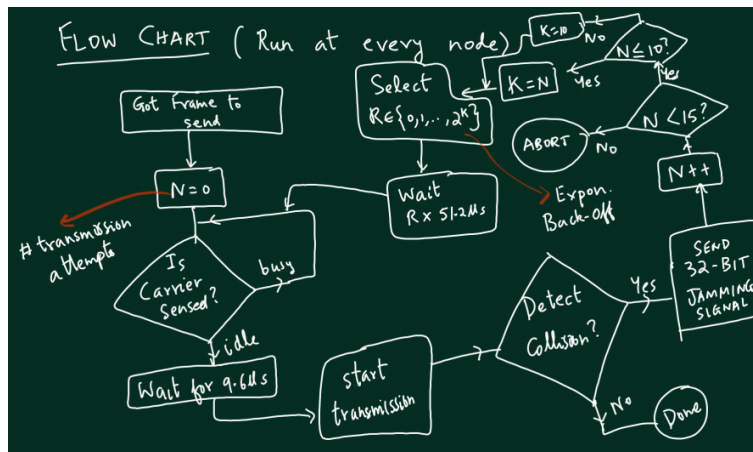 FLOW CHART (Run at every node)
Got Frame to
send
N=0
#transmission
attempts
Is
Carrier
Sensed?
busy
idle
Wait for 9.6μs
start
transmission
Detect
Collision?
No
Done
Yes
SEND
32-BIT
JAMMING
SIGNAL
N++
N<15?
No
ABORT
Yes
N≤10?
No
K=10
Yes
K=N
Select
R∈{0,1,..,2^K}
Expon.
Back-Off
Wait
R × 51.2μs